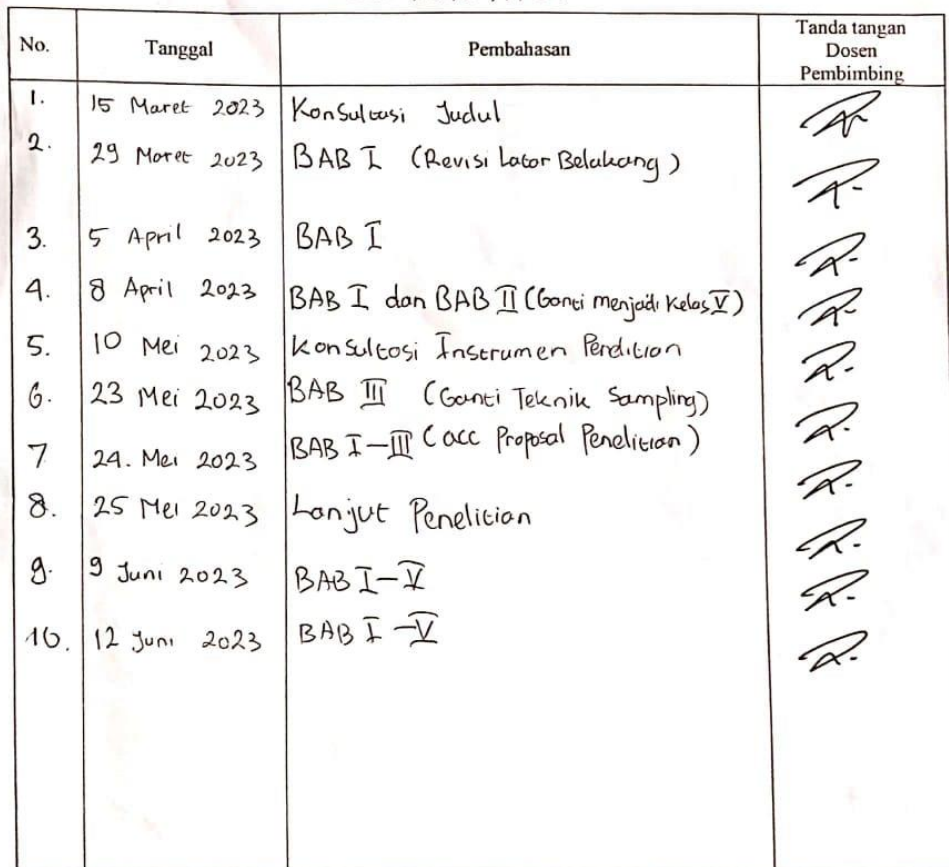 No. Tanggal Pembahasan Tanda tangan
Dosen
Pembimbing
1. 15 Maret 2023 Konsultasi Judul
2. 29 Maret 2023 BAB I (Revisi Latar Belakang)
3. 5 April 2023 BAB I
4. 8 April 2023 BAB I dan BAB II (Ganti menjadi Kelas V)
5. 10 Mei 2023 Konsultasi Instrumen Penelitian
6. 23 Mei 2023 BAB III (Ganti Teknik Sampling)
7 24. Mei 2023 BAB I-III (acc Proposal Penelitian)
8. 25 Mei 2023 Lanjut Penelitian
9. 9 Juni 2023 BAB I-V
10. 12 Juni 2023 BAB I-V